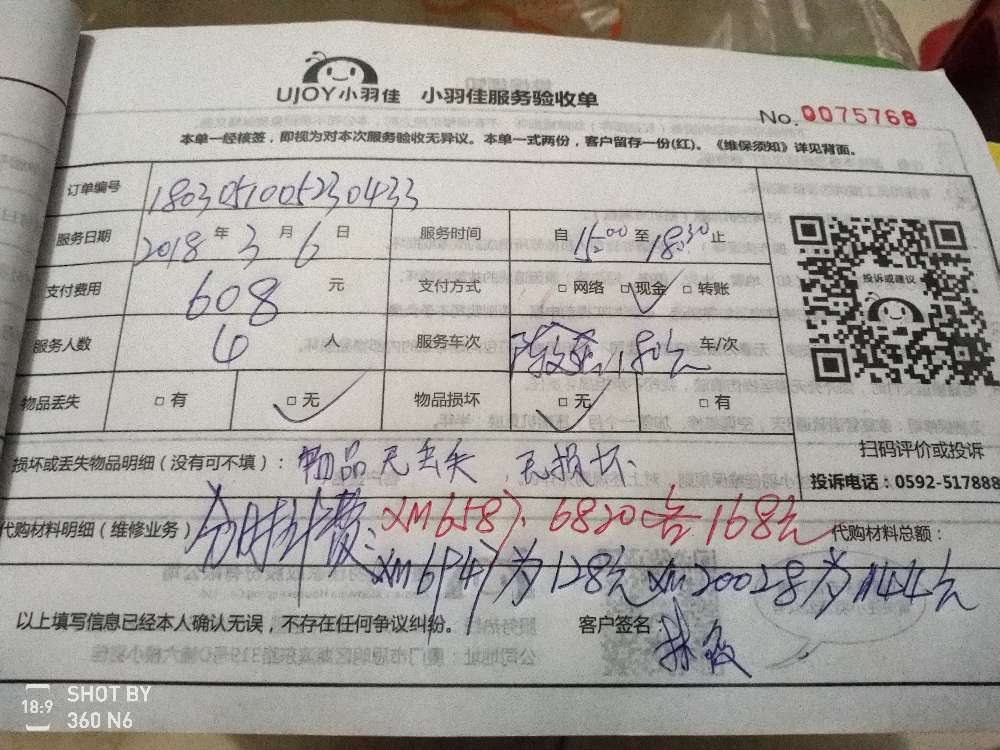 UJOY小羽佳 小羽佳服务验收单
No.0075768
本单一经核签，即视为对本次服务验收无异议。本单一式两份，客户留存一份(红)。《维保须知》详见背面。
订单编号 1803051005230433
服务日期 2018年3月6日 服务时间 自15:00至18:30止
投诉或建议
支付费用 608元 支付方式 □网络 □现金 □转账
服务人数 4人 服务车次 180元 车/次
物品丢失 □有 □无 物品损坏 □无 □有
扫码评价或投诉
损坏或丢失物品明细（没有可不填）：物品无丢失 无损坏.
投诉电话：0592-517888
代购材料明细（维修业务） 分时计费：XM6587、6820各168元 代购材料总额：
为128元 XM20028为144元
以上填写信息已经本人确认无误，不存在任何争议纠纷。 客户签名：
18:9 SHOT BY
360 N6